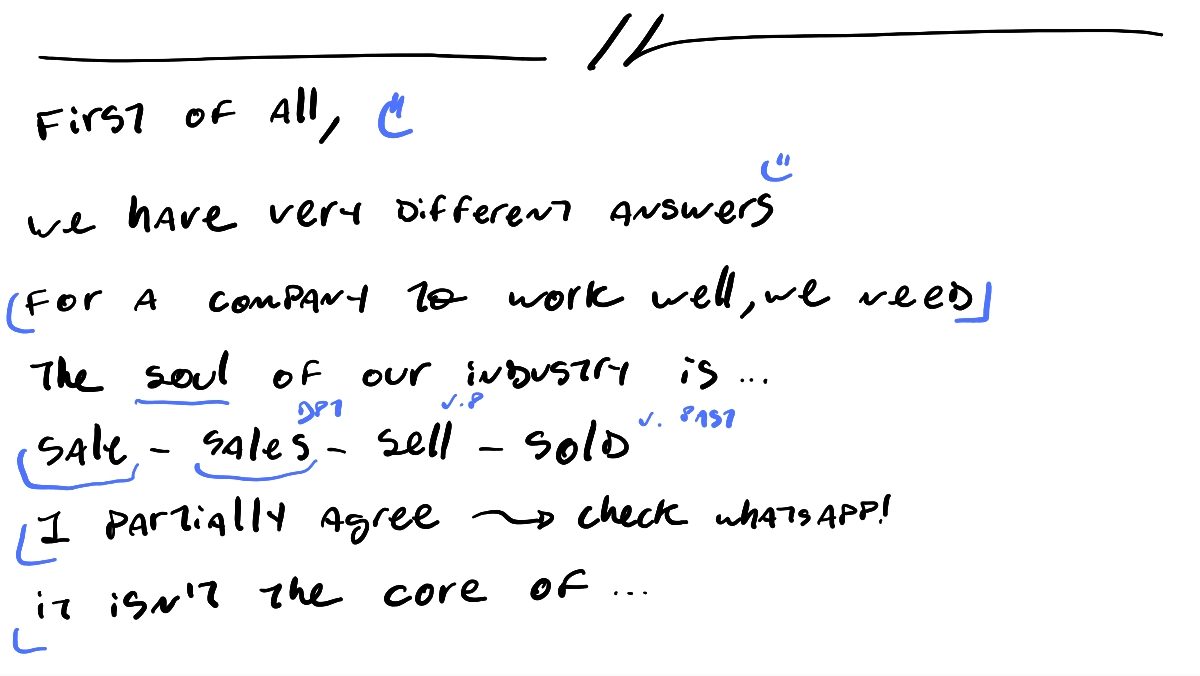 First of All,
we have very different answers
For a company to work well, we need
The soul of our industry is ...
DPT v. P v. PAST
sale - sales - sell - sold
I partially agree → check whatsapp!
it isn't the core of ...